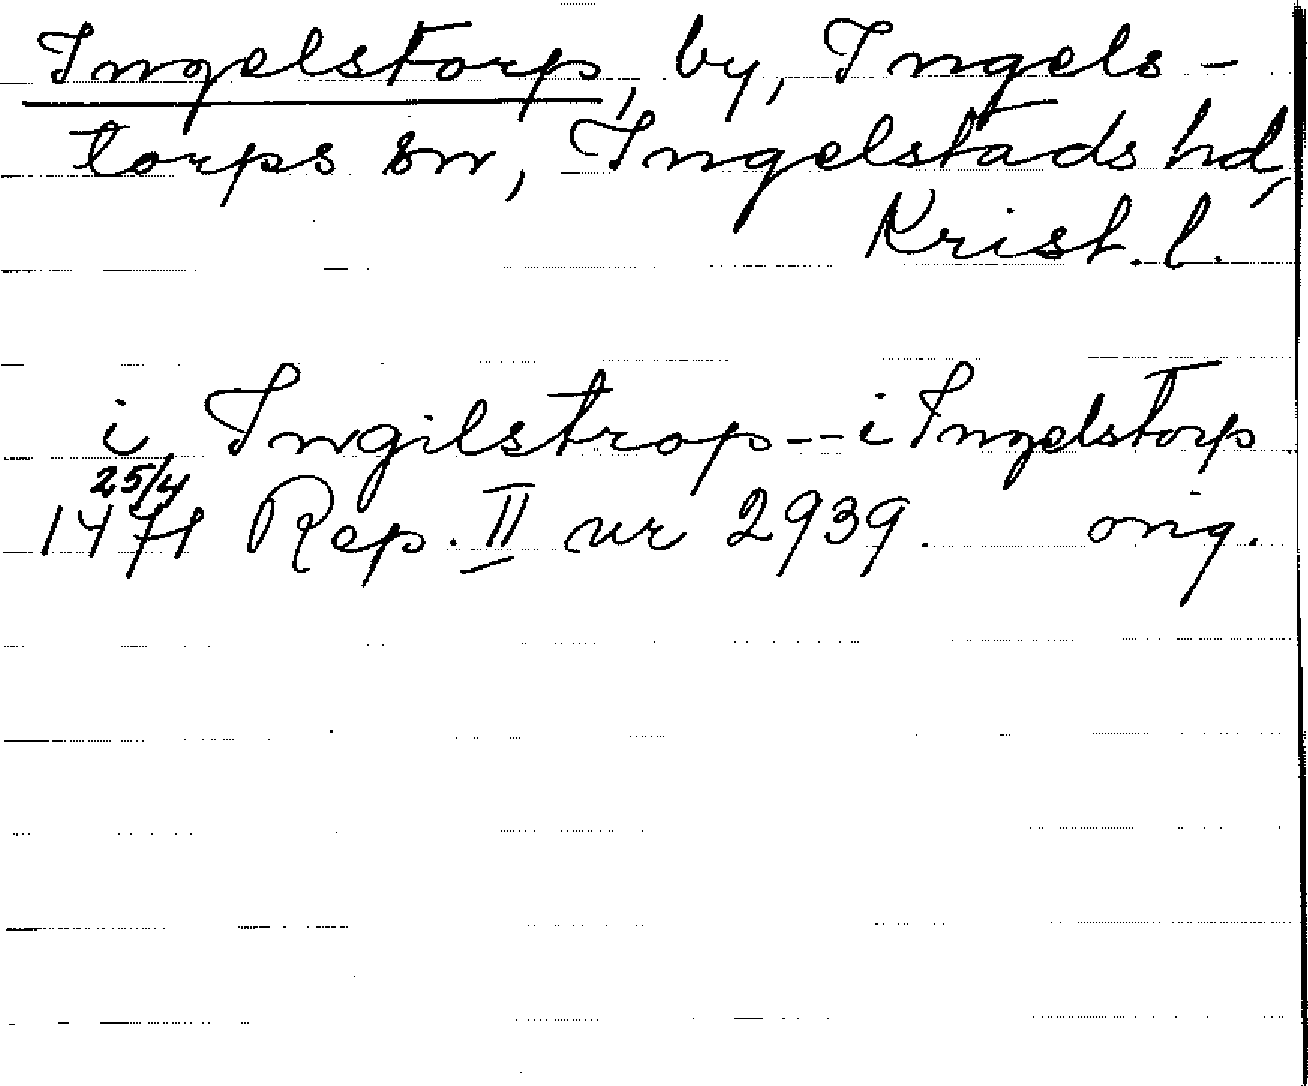 Ingelstorp, by, Ingels-
torps sn, Ingelstads hd,
Krist. l.
i Ingilstrop -- i Ingelstorp
25/4
1471 Rep. II nr 2939. orig.